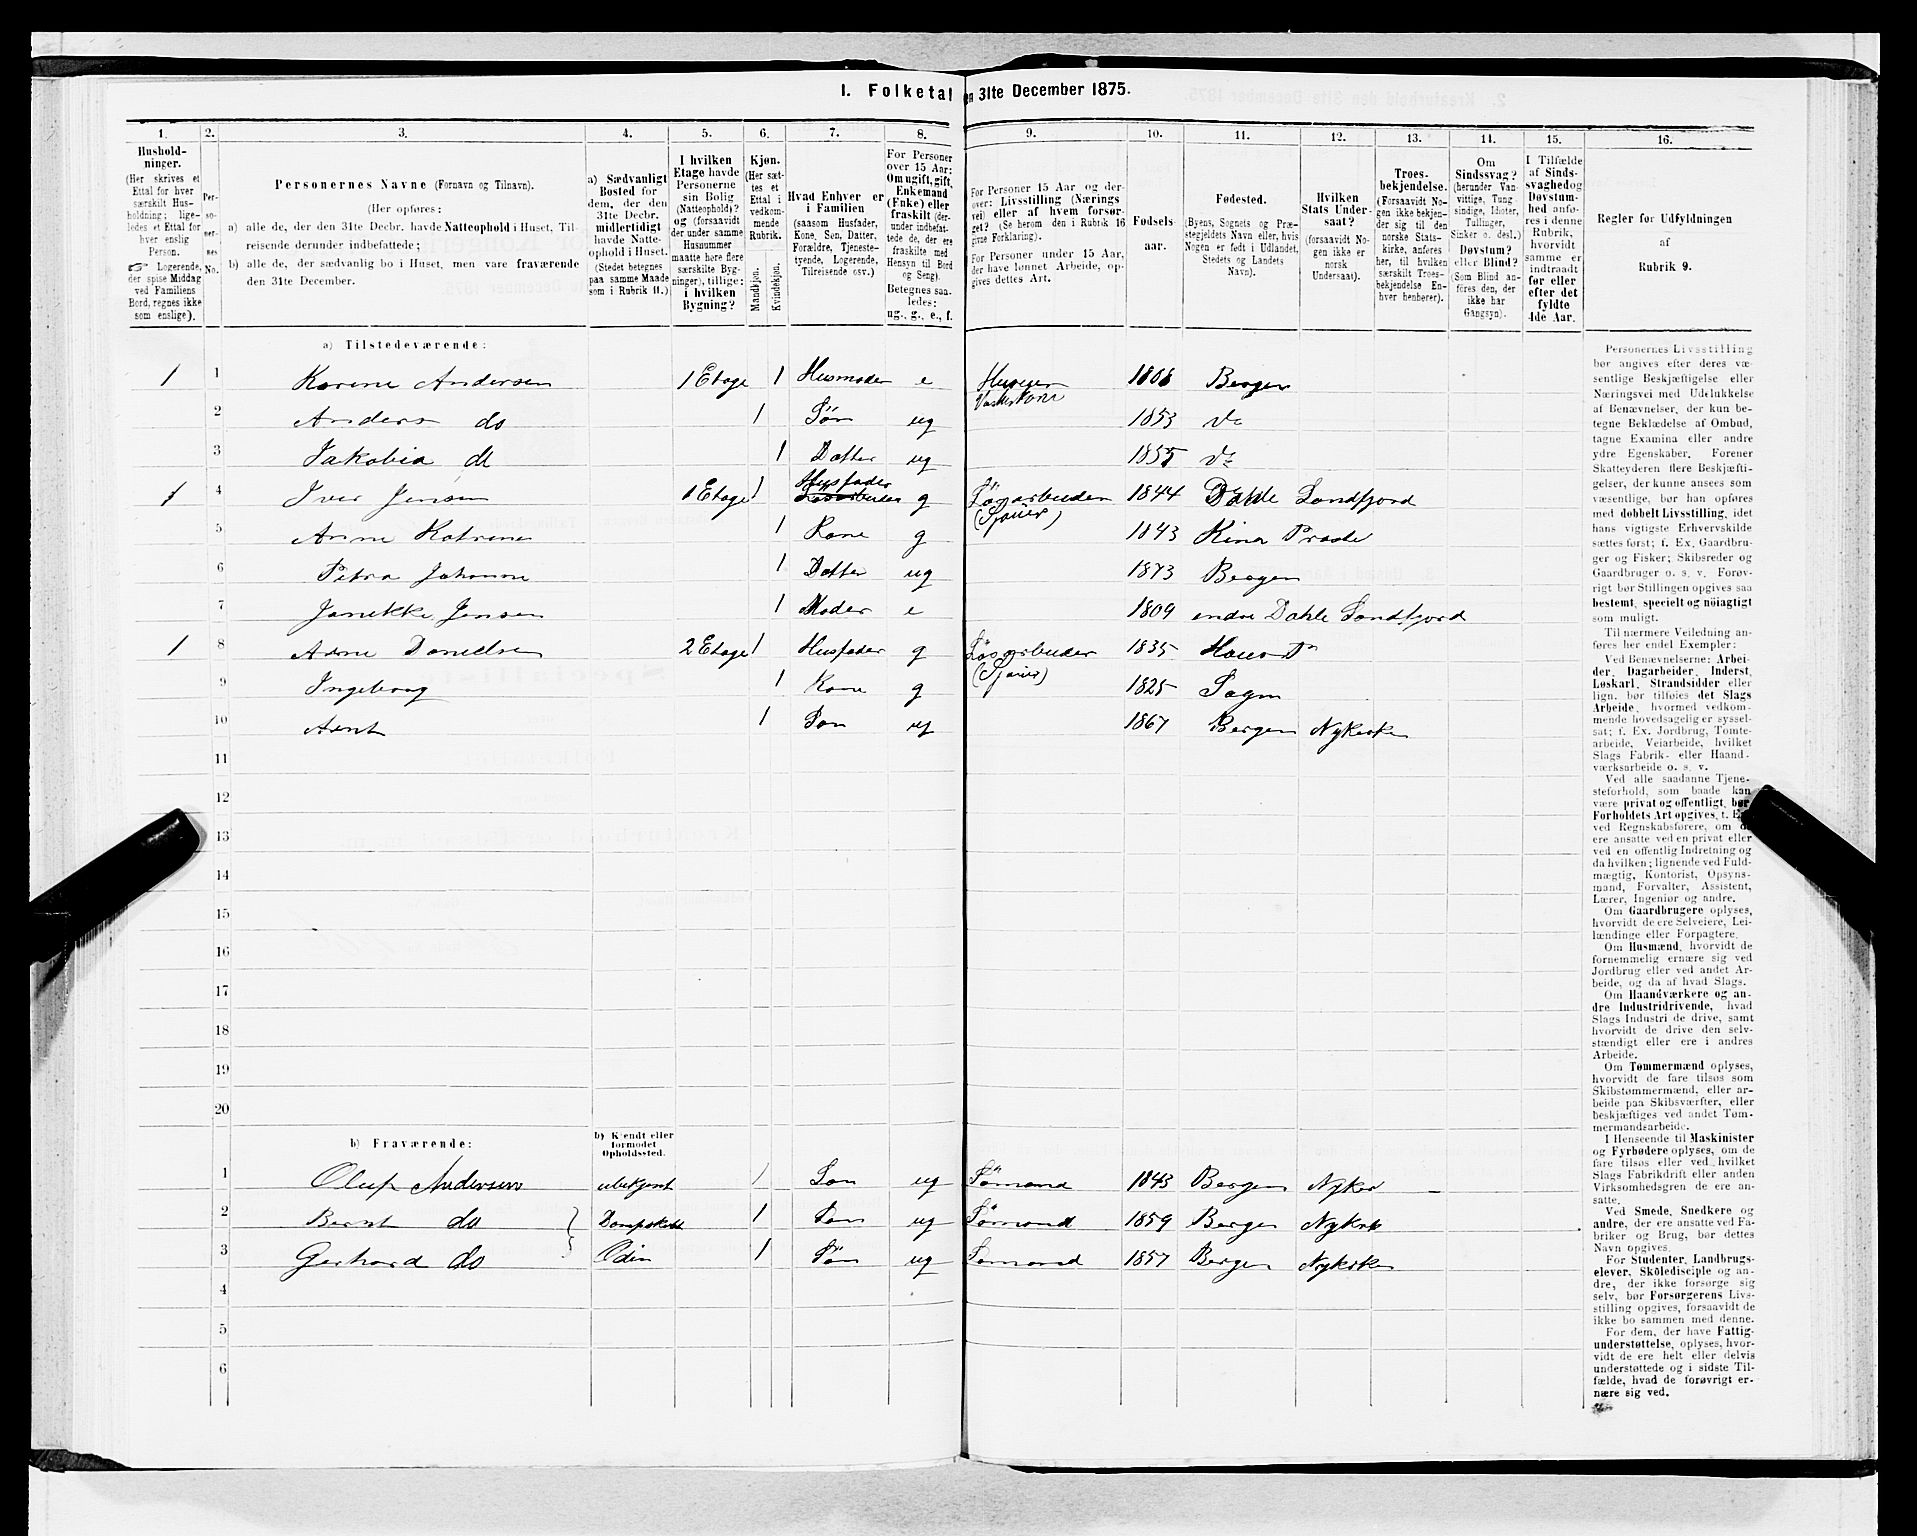 I. Folketal
en 31te December 1875.
1. 2. 3. 4. 5. 6. 7. 8. 9. 10. 11. 12. 13. 14. 15. 16.
Hushold-
ninger.
(Her skrives et
Ettal for hver
særskilt Hus-
holdning; lige-
ledes et Ettal for
hver enslig
Person.
☞ Logerende,
der spise Middag
ved Familiens
Bord, regnes ikke
som enslige).
Per-
so-
ner-
nes
No.
Personernes Navne (Fornavn og Tilnavn).
(Her opføres:
a) alle de, der den 31te Decbr. havde Natteophold i Huset, Til-
reisende derunder indbefattede;
b) alle de, der sædvanlig bo i Huset, men vare fraværende
den 31te December.
a) Sædvanligt
Bosted for
dem, der den
31te Decbr.
midlertidigt
havde Natte-
ophold i Huset.
(Stedet betegnes
paa samme Maade
som i Rubrik 11.)
I hvilken
Etage havde
Personerne
sin Bolig
(Natteophold)?
og (forsaavidt
der under samme
Husnummer
maatte høre flere
særskilte Byg-
ninger), tillige:
i hvilken
Bygning?
Kjøn.
(Her sæt-
tes et
Ettal i
vedkom-
mende
Rubrik.
Mandkjøn.
Kvindekjøn.
Hvad Enhver er
i Familien
(saasom Husfader,
Kone, Søn, Datter,
Forældre, Tjeneste-
tyende, Logerende,
Tilreisende osv.)
For Personer
over 15 Aar:
Om ugift, gift,
Enkemand
(Enke) eller
fraskilt (der-
under indbefat-
tede de, der ere
fraskilte med
Hensyn til Bord
og Seng).
Betegnes saa-
ledes:
ug., g., e., f.
For Personer 15 Aar og der-
over: Livsstilling (Nærings-
vei) eller af hvem forsør-
get? (Se herom den i Rubrik 16
givne Forklaring).
For Personer under 15 Aar,
der have lønnet Arbeide, op-
gives dettes Art.
Fødsels-
aar.
Fødested.
(Byens, Sognets og Præ-
stegjeldets Navn eller, hvis
Nogen er født i Udlandet,
Stedets og Landets
Navn).
Hvilken
Stats Under-
saat?
(forsaavidt No-
gen ikke er
norsk
Undersaat).
Troes-
bekjendelse.
(Forsaavidt No-
gen ikke bekjen-
der sig til den
norske Stats-
kirke, anføres
her, til hvilken
særskilt Troes-
bekjendelse En-
hver henhører).
Om
Sindssvag?
(herunder Van-
vittige, Tung-
sindige, Idioter,
Tullinger,
Sinker o. desl.)
Døvstum?
eller Blind?
(Som Blind an-
føres den, der
ikke har
Gangsyn).
I Tilfælde
af Sinds-
svaghed og
Døvstum-
hed anfø-
res i denne
Rubrik,
hvorvidt
samme er
indtraadt
før eller
efter det
fyldte
4de Aar.
Regler for Udfyldningen
af
Rubrik 9.
a) Tilstedeværende:
1 1 Karine Andersen 1 Etage 1 Husmoder e Huseier Vaskekone 1808 Bergen
2 Anders do 1 Søn ug 1853 do
3 Jakobia do 1 Datter ug 1855 do
1 4 Iver Jensen 1 Etage 1 Husfader Løsarbeider g Løsarbeider (Sjauer) 1844 Dahle Søndfjord
5 Anne Katrine 1 Kone g 1843 Kinn Præste
6 Petra Johanne 1 Datter ug 1873 Bergen
7 Janikke Jensen 1 Moder e 1809 Dahle Søndfjord
1 8 Arne Danielsen 2 Etage 1 Husfader g Løsarbeider (Sjauer) 1835 Hous
9 Ingeborg 1 Kone g 1825 Sogn
10 Arnt 1 Søn ug 1867 Bergen Nykirken
11
12
13
14
15
16
17
18
19
20
b) Fraværende:
b) Kjendt eller
formodet
Opholdssted.
1 Oluf Andersen ubekjent 1 Søn ug Sømand 1843 Bergen Nykir
2 Bernt do Dampskib 1 Søn ug Sømand 1859 Bergen Nykirk
3 Gerhard do Odin 1 Søn ug Sømand 1857 Bergen Nykirken
4
5
6
Personernes Livsstilling
bør angives efter deres væ-
sentlige Beskjæftigelse eller
Næringsvei med Udelukkelse
af Benævnelser, der kun be-
tegne Beklædelse af Ombud,
tagne Examina eller andre
ydre Egenskaber. Forener
Skatteyderen flere Beskjæfti-
gelser, der kunne ansees som
væsentlige, bør han opføres
med dobbelt Livsstilling, idet
hans vigtigste Erhvervskilde
sættes først; f. Ex. Gaardbru-
ger og Fisker; Skibsreder og
Gaardbruger o. s. v. Forøv-
rigt bør Stillingen opgives saa
bestemt, specielt og nöiagtigt
som muligt.
Til nærmere Veiledning an-
føres her endel Exempler:
Ved Benævnelserne: Arbei-
der, Dagarbeider, Inderst,
Løskarl, Strandsidder eller
lign. bør tilføies det Slags
Arbeide, hvormed vedkom-
mende hovedsagelig er syssel-
sat; f. Ex. Jordbrug, Tomte-
arbeide, Veiarbeide, hvilket
Slags Fabrik- eller Haand-
værksarbeide o. s. v.
Ved alle saadanne Tjene-
steforhold, som baade kan
være privat og offentligt, bør
Forholdets Art opgives, t. E
ved Regnskabsførere, om d
ere ansatte ved en privat eller
ved en offentlig Indretning og
da hvilken; lignende ved Fuld-
mægtig, Kontorist, Opsyns-
mand, Forvalter, Assistent,
Lærer, Ingeniør og andre.
Om Gaardbrugere oplyses,
hvorvidt de ere Selveiere, Lei-
lændinge eller Forpagtere.
Om Husmænd, hvorvidt de
fornemmelig ernære sig ved
Jordbrug eller ved andet Ar-
beide, og da af hvad Slags.
Om Haandværkere og an-
dre Industridrivende, hvad
Slags Industri de drive, samt
hvorvidt de drive den selv-
stændigt eller ere i andres
Arbeide.
Om Tømmermænd oplyses,
hvorvidt de fare tilsøs som
Skibstømmermænd, eller ar-
beide paa Skibsværfter, eller
beskjæftiges ved andet Tøm-
mermandsarbeide.
I Henseende til Maskinister
og Fyrbødere oplyses, om de
fare tilsøs eller ved hvilket
Slags Fabrikdrift eller anden
Virksomhedsgren de ere an-
satte.
Ved Smede, Snedkere og
andre, der ere ansatte ved Fa-
briker og Brug, bør dettes
Navn opgives.
For Studenter, Landbrugs-
elever, Skoledisciple og an-
dre, der ikke forsørge sig
selv, bør Forsørgerens Livs-
stilling opgives, forsaavidt de
ikke bo sammen med denne.
For dem, der have Fattig-
understøttelse, oplyses, hvor-
vidt de ere helt eller delvis
understøttede og i sidste Til-
fælde, hvad de forøvrigt er-
nære sig ved.